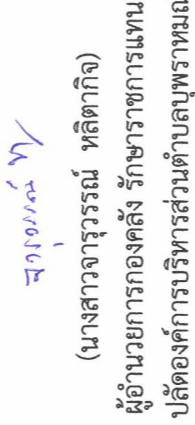 จารุวรรณ์ ห
(นางสาวจารุวรรณ์ หลิตากิจ)
ผู้อำนวยการกองคลัง รักษาราชการแทน
ปลัดองค์การบริหารส่วนตำบลบุพราหมณ์